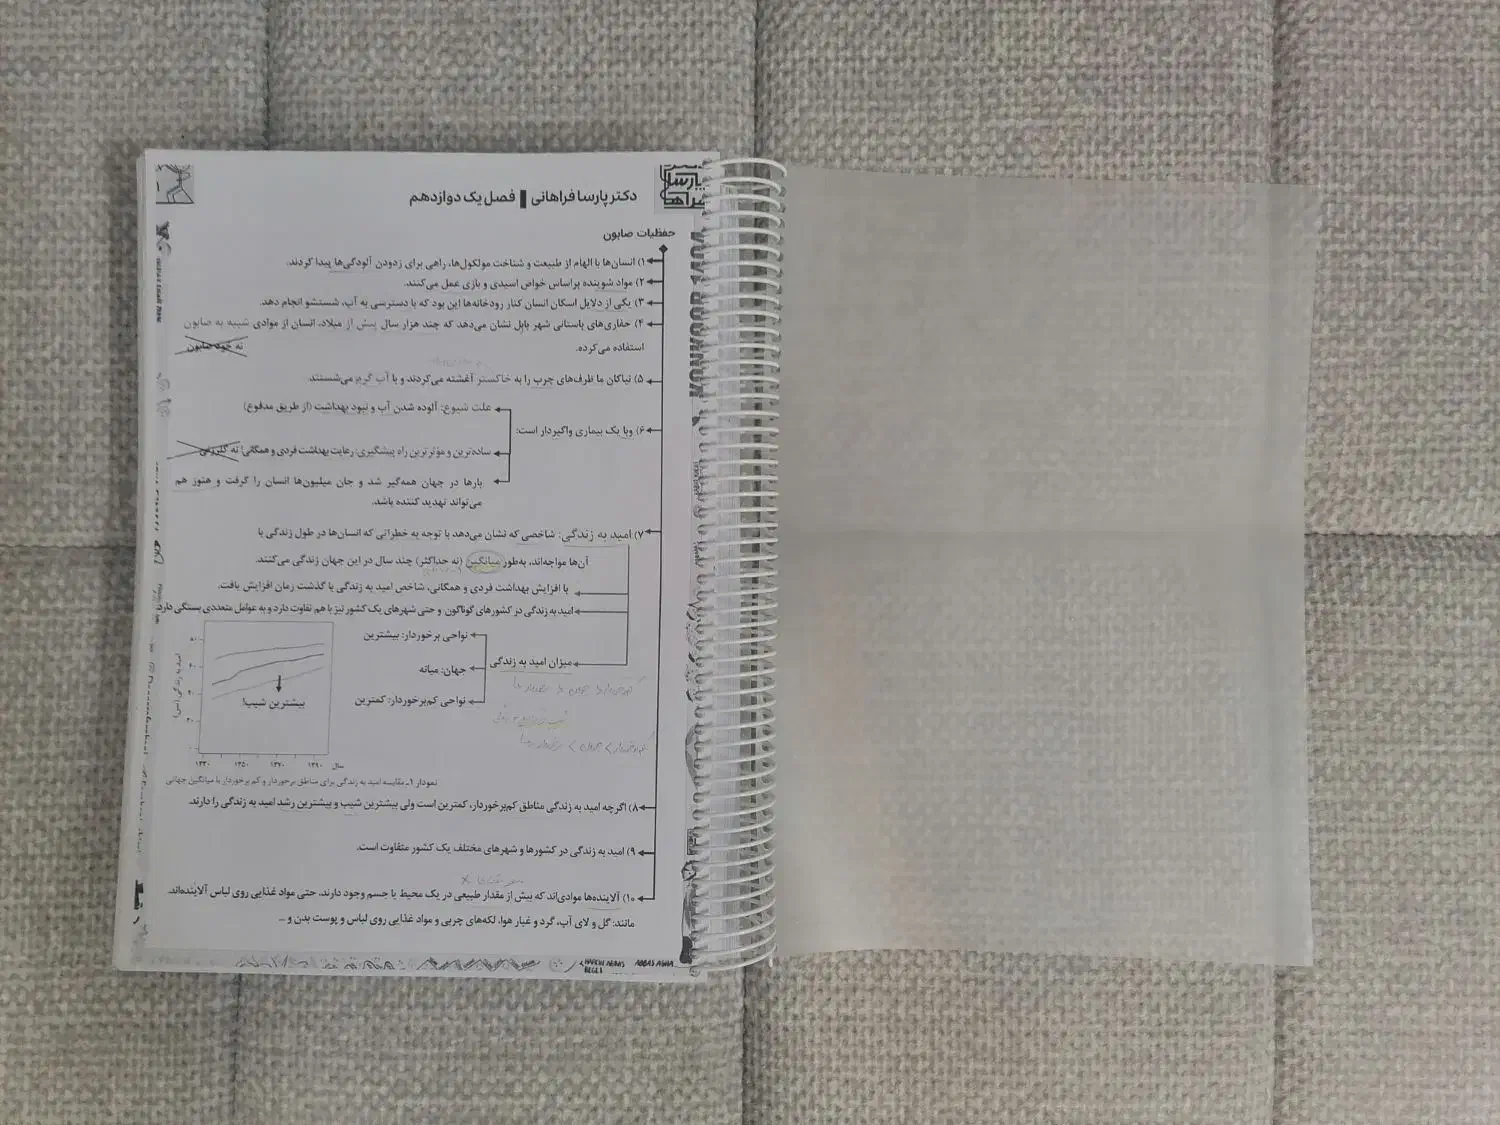 دکتر پارسا فراهانی | فصل یک دوازدهم
حفظیات صابون
۱) انسان‌ها با الهام از طبیعت و شناخت مولکول‌ها، راهی برای زدودن آلودگی‌ها پیدا کردند.
۲) مواد شوینده براساس خواص اسیدی و بازی عمل می‌کنند.
۳) یکی از دلایل اسکان انسان کنار رودخانه‌ها این بود که با دسترسی به آب، شستشو انجام دهد.
۴) حفاری‌های باستانی شهر بابل نشان می‌دهد که چند هزار سال پیش از میلاد، انسان از موادی شبیه به صابون
استفاده می‌کرده.
نه خود صابون
۵) نیاکان ما ظرف‌های چرب را به خاکستر آغشته می‌کردند و با آب گرم می‌شستند.
علت شیوع: آلوده شدن آب و نبود بهداشت (از طریق مدفوع)
۶) وبا یک بیماری واگیردار است:
ساده‌ترین و مؤثرترین راه پیشگیری: رعایت بهداشت فردی و همگانی! نه کلرزنی
بارها در جهان همه‌گیر شد و جان میلیون‌ها انسان را گرفت و هنوز هم
می‌تواند تهدید کننده باشد.
۷) امید به زندگی: شاخصی که نشان می‌دهد با توجه به خطراتی که انسان‌ها در طول زندگی با
آن‌ها مواجه‌اند، به‌طور میانگین (نه حداکثر) چند سال در این جهان زندگی می‌کنند.
با افزایش بهداشت فردی و همگانی، شاخص امید به زندگی با گذشت زمان افزایش یافت.
امید به زندگی در کشورهای گوناگون و حتی شهرهای یک کشور نیز با هم تفاوت دارد و به عوامل متعددی بستگی دارد.
نواحی برخوردار: بیشترین
میزان امید به زندگی
جهان: میانه
نواحی کم‌برخوردار: کمترین
امید به زندگی (سال)
بیشترین شیب!
۱۳۳۰ ۱۳۵۰ ۱۳۷۰ ۱۳۹۰ سال
نمودار ۱ـ مقایسه امید به زندگی برای مناطق برخوردار و کم‌برخوردار با میانگین جهانی
۸) اگرچه امید به زندگی مناطق کم‌برخوردار، کمترین است ولی بیشترین شیب و بیشترین رشد امید به زندگی را دارند.
۹) امید به زندگی در کشورها و شهرهای مختلف یک کشور متفاوت است.
۱۰) آلاینده‌ها موادی‌اند که بیش از مقدار طبیعی در یک محیط یا جسم وجود دارند. حتی مواد غذایی روی لباس آلاینده‌اند.
مانند: گل و لای آب، گرد و غبار هوا، لکه‌های چربی و مواد غذایی روی لباس و پوست بدن و ...